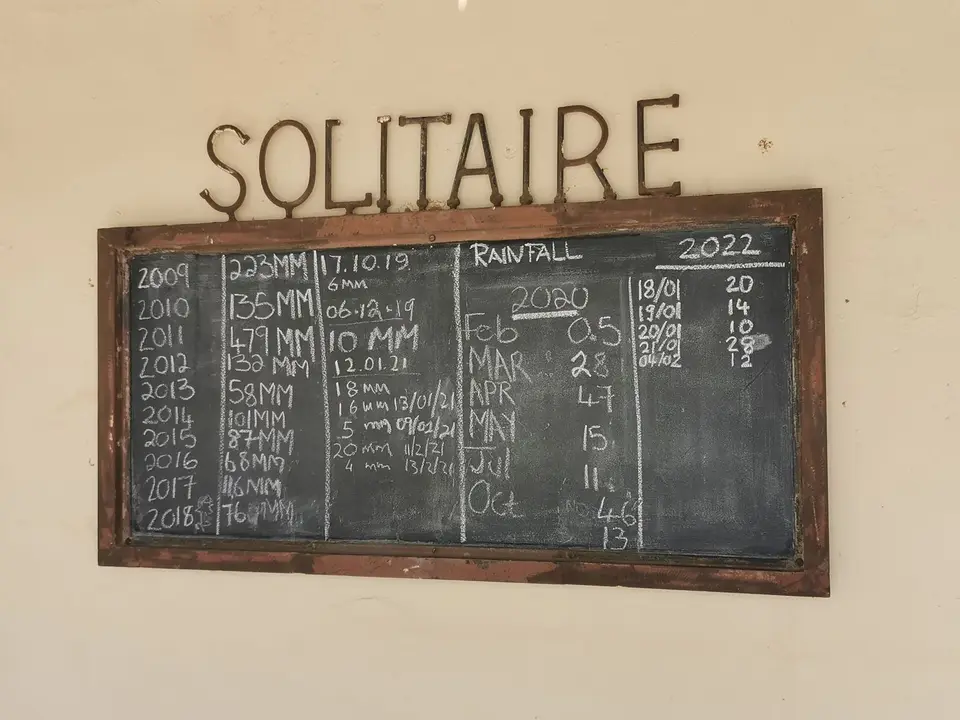 SOLITAIRE
2009 223MM
2010 135MM
2011 479MM
2012 132 MM
2013 58MM
2014 101MM
2015 87MM
2016 68MM
2017 116MM
2018 76 MM
17.10.19
6MM
06.12.19
10 MM
12.01.21
18 MM
16 mm 13/01/21
.5 mm 09/02/21
20 mm 11/2/21
4 mm 13/2/21
RAINFALL
2020
Feb 0.5
MAR 28
APR 47
MAY 15
Jul 11
Oct 46
13
2022
18/01 20
19/01 14
20/01 10
21/01 28
04/02 12